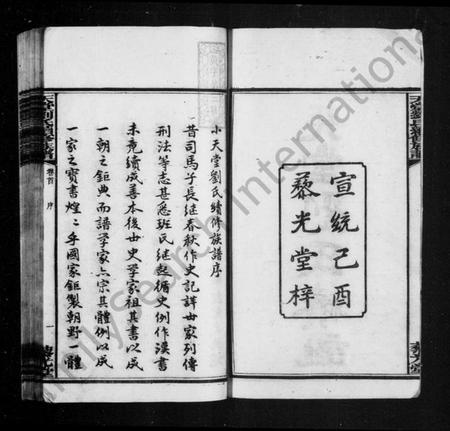 宣統己酉
藜光堂梓
小天堂劉氏續修族譜序
昔司馬子長継春秋作史記詳世家列傳
刑法等志甚悉班氏継起循史例作漢書
未竟續成善本後世史學家祖其書以成
一朝之鉅典而譜學家亦宗其體例以成
一家之寶書煌煌乎國家鉅製朝野一體
卷首
序
一
FamilySearch International